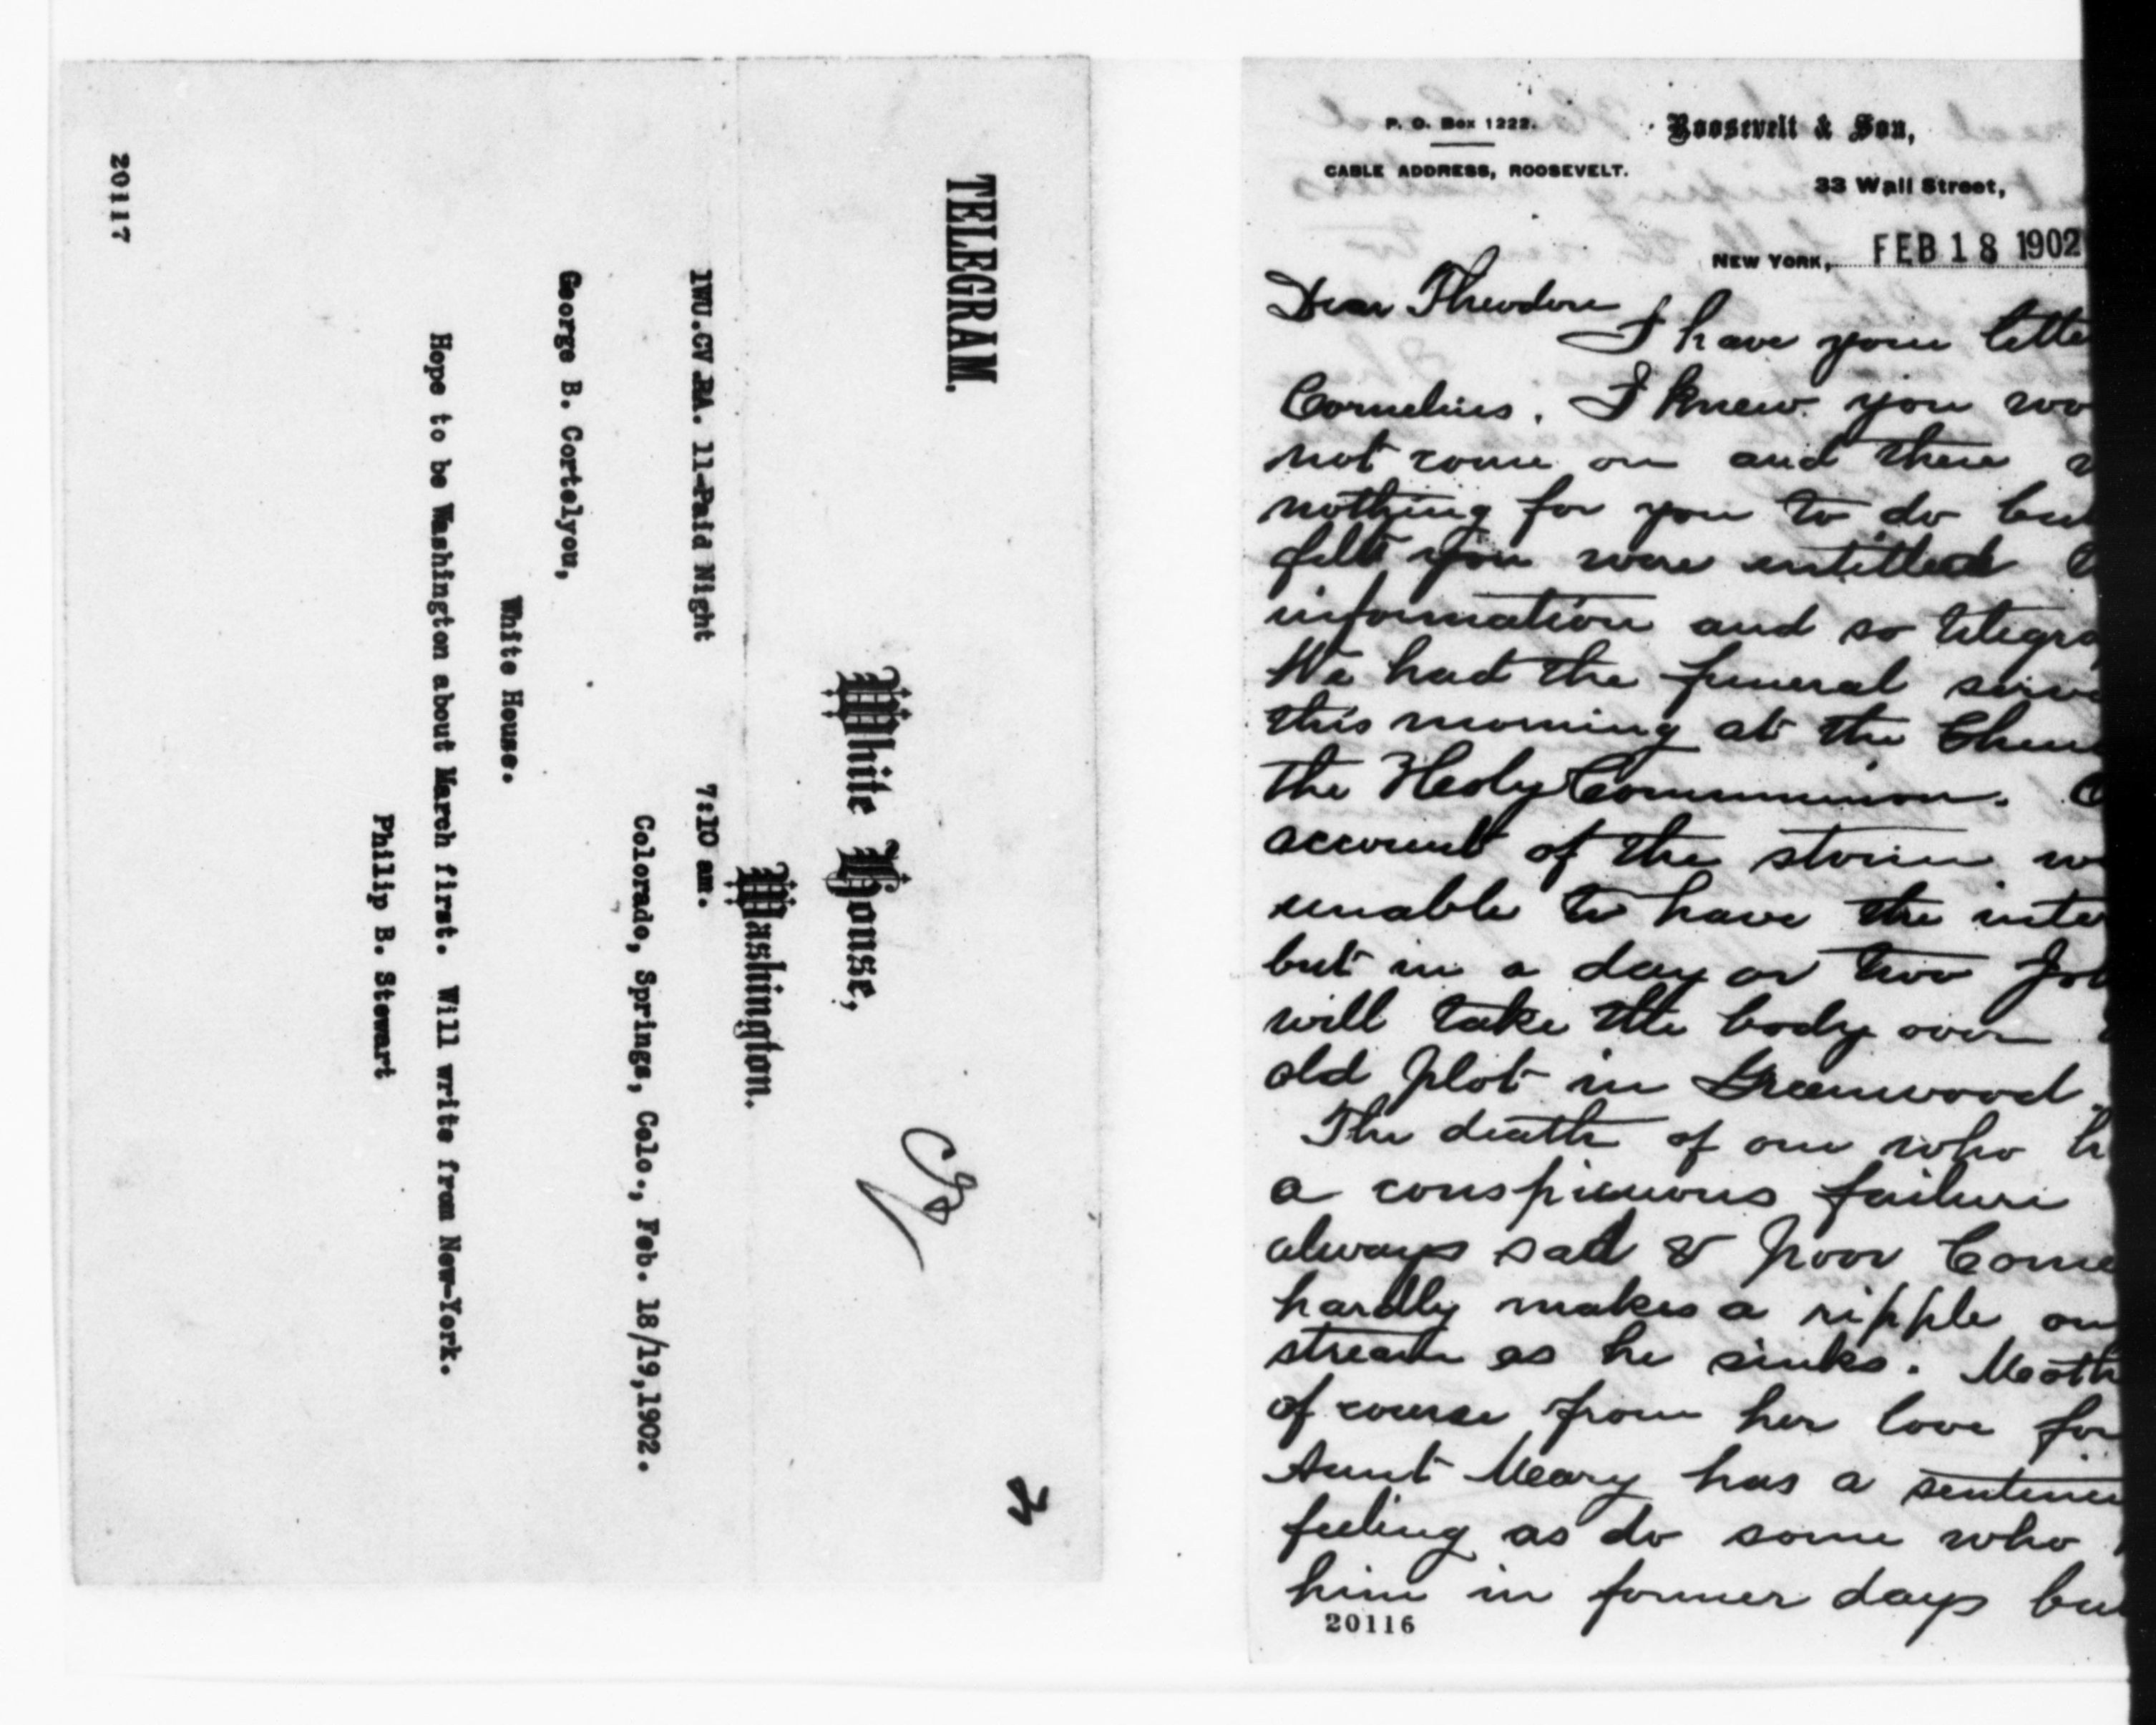 TELEGRAM.
White House,
Washington.
1WU.CV RA. 11-Paid Night 7:10 am.
Colorado, Springs, Colo., Feb. 18/19,1902.
George B. Cortelyou,
White House.
Hope to be Washington about March first. Will write from New-York.
Philip B. Stewart
20117
P. O. Box 1222.
CABLE ADDRESS, ROOSEVELT.
Roosevelt & Son,
33 Wall Street,
NEW YORK, FEB 18 1902
Dear Theodore
I have your lette
Cornelius. I knew you wo
not come on and there
nothing for you to do but
felt you were entitled
information and so telegra
We had the funeral serv
this morning at the Chu
the Holy Communion.
account of the storm w
unable to have the inte
but in a day or two
will take the body over
old plot in Greenwood.
The death of one who h
a conspicuous failure
always sad & poor Corne
hardly makes a ripple on
stream as he sinks. Moth
of course from her love for
Aunt Mary has a sentime
feeling as do some who
him in former days bu
20116